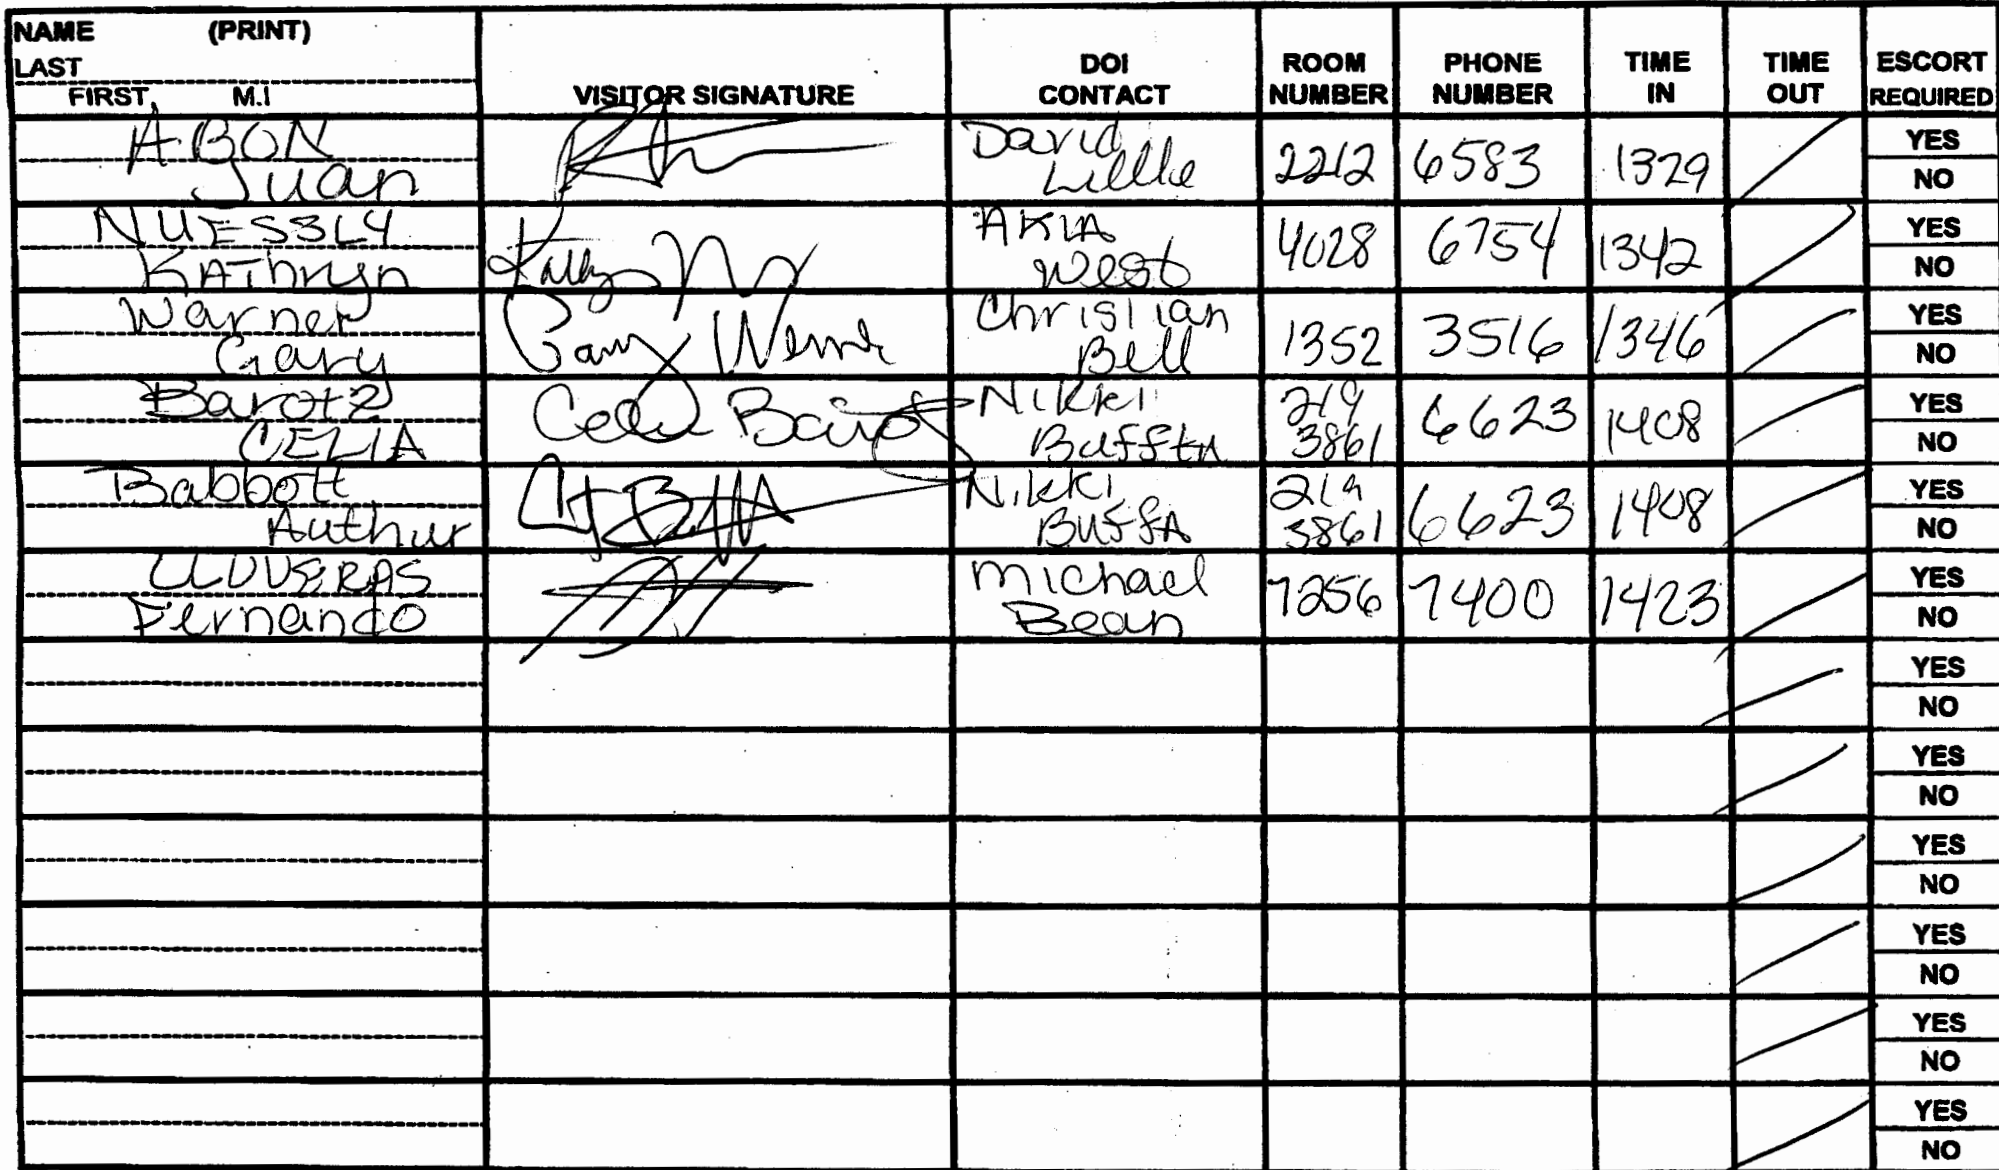 NAME (PRINT)
LAST
FIRST, M.I
VISITOR SIGNATURE
DOI CONTACT
ROOM NUMBER
PHONE NUMBER
TIME IN
TIME OUT
ESCORT REQUIRED
ABON
Juan
David
2212 6583 1329
YES
NO
NUESSLY
KAThryn
AKIA
West
4028 6754 1342
YES
NO
Warner
Gary
Christian
Bell
1352 3516 1346
YES
NO
Barotz
CELIA
Nikki
219
3861
6623 1408
YES
NO
Babbott
Authur
Nikki
Buffa
219
3861
6623 1408
YES
NO
LLUVERAS
Fernando
Michael
Bean
7256 7400 1423
YES
NO
YES
NO
YES
NO
YES
NO
YES
NO
YES
NO
YES
NO